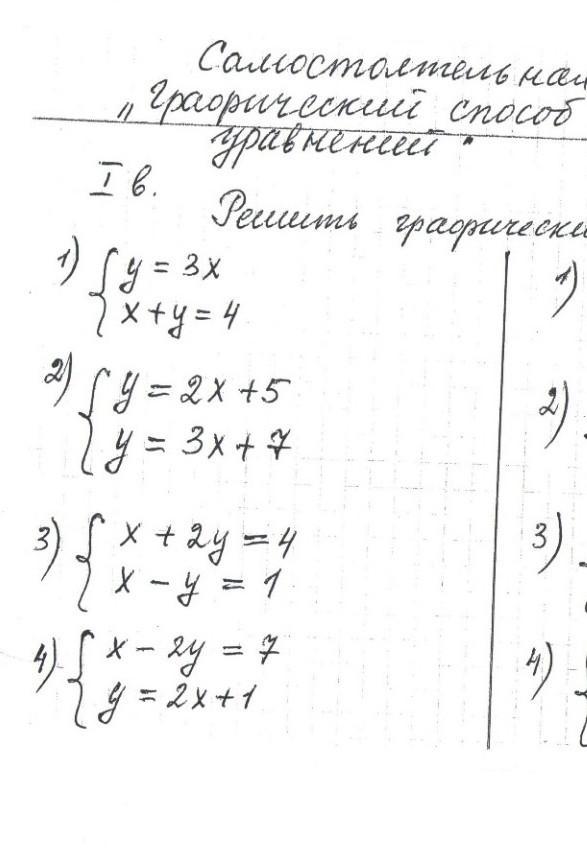 Самостоятельная
„Графический способ
уравнений".
I в.
Решить графически
1) { y = 3x
x + y = 4
2) { y = 2x + 5
y = 3x + 7
3) { x + 2y = 4
x - y = 1
4) { x - 2y = 7
y = 2x + 1
1)
2)
3)
4)